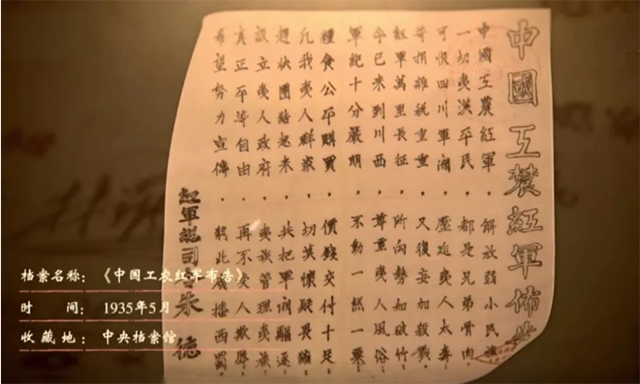 中國工農紅軍佈告
中國工農紅軍，解放弱小民族
一切夷漢平民，都是兄弟骨肉
可恨四川軍閥，壓迫夷人太毒
苛捐雜稅重重，又復妄加殺戮
紅軍萬里長征，所向勢如破竹
今已來到川西，尊重夷人風俗
軍紀十分嚴明，不動一絲一粟
糧食公平購買，價錢交付十足
凡我夷人群眾，切莫懷疑畏縮
趕快團結起來，共把軍閥驅逐
設立夷人政府，夷族管理夷族
真正平等自由，再不受人欺辱
希望努力宣傳，將此廣播西蜀
紅軍總司令朱德
档案名称：《中国工农红军布告》
时　　间：1935年5月
收 藏 地：中央档案馆